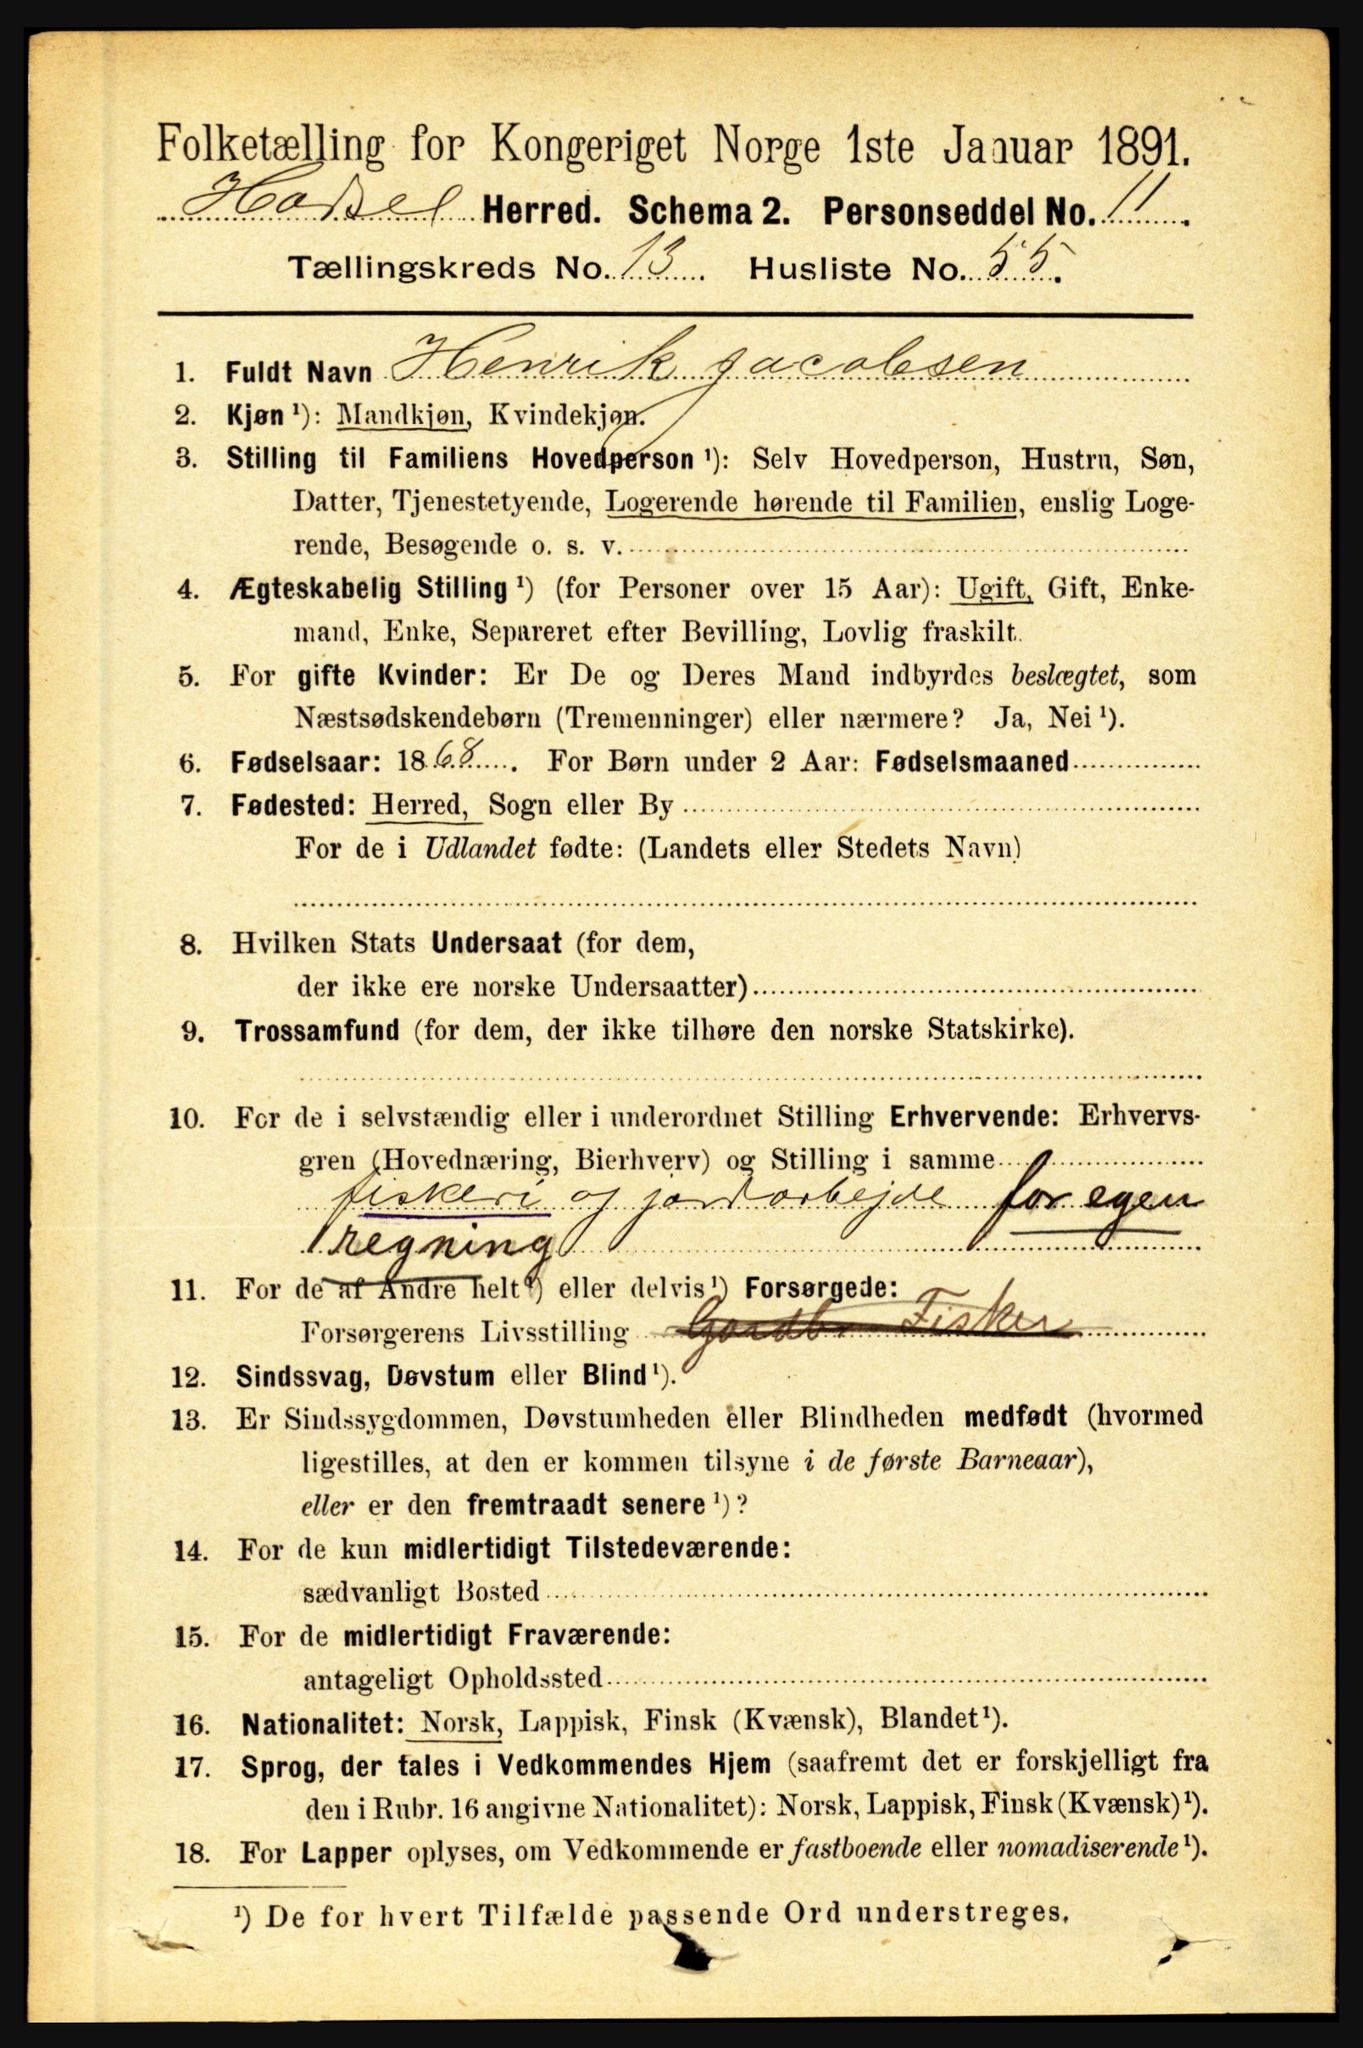 Folketælling for Kongeriget Norge 1ste Januar 1891.
Hadsel Herred. Schema 2. Personseddel No. 11.
Tællingskreds No. 13. Husliste No. 55.
1. Fuldt Navn Henrik Jacobsen
2. Kjøn ¹): Mandkjøn, Kvindekjøn.
3. Stilling til Familiens Hovedperson ¹): Selv Hovedperson, Hustru, Søn,
Datter, Tjenestetyende, Logerende hørende til Familien, enslig Loge-
rende, Besøgende o. s. v.
4. Ægteskabelig Stilling ¹) (for Personer over 15 Aar): Ugift, Gift, Enke-
mand, Enke, Separeret efter Bevilling, Lovlig fraskilt.
5. For gifte Kvinder: Er De og Deres Mand indbyrdes beslægtet, som
Næstsødskendebørn (Tremenninger) eller nærmere? Ja, Nei ¹).
6. Fødselsaar: 1868. For Børn under 2 Aar: Fødselsmaaned
7. Fødested: Herred, Sogn eller By
For de i Udlandet fødte: (Landets eller Stedets Navn)
8. Hvilken Stats Undersaat (for dem,
der ikke ere norske Undersaatter)
9. Trossamfund (for dem, der ikke tilhøre den norske Statskirke).
10. For de i selvstændig eller i underordnet Stilling Erhvervende: Erhvervs-
gren (Hovednæring, Bierhverv) og Stilling i samme
fiskeri og jordarbejde for egen
regning
11. For de af Andre helt ¹) eller delvis ¹) Forsørgede:
Forsørgerens Livsstilling Gardbr Fisker
12. Sindssvag, Døvstum eller Blind ¹).
13. Er Sindssygdommen, Døvstumheden eller Blindheden medfødt (hvormed
ligestilles, at den er kommen tilsyne i de første Barneaar),
eller er den fremtraadt senere ¹)?
14. For de kun midlertidigt Tilstedeværende:
sædvanligt Bosted
15. For de midlertidigt Fraværende:
antageligt Opholdssted
16. Nationalitet: Norsk, Lappisk, Finsk (Kvænsk), Blandet ¹).
17. Sprog, der tales i Vedkommendes Hjem (saafremt det er forskjelligt fra
den i Rubr. 16 angivne Nationalitet): Norsk, Lappisk, Finsk (Kvænsk) ¹).
18. For Lapper oplyses, om Vedkommende er fastboende eller nomadiserende ¹).
¹) De for hvert Tilfælde passende Ord understreges.